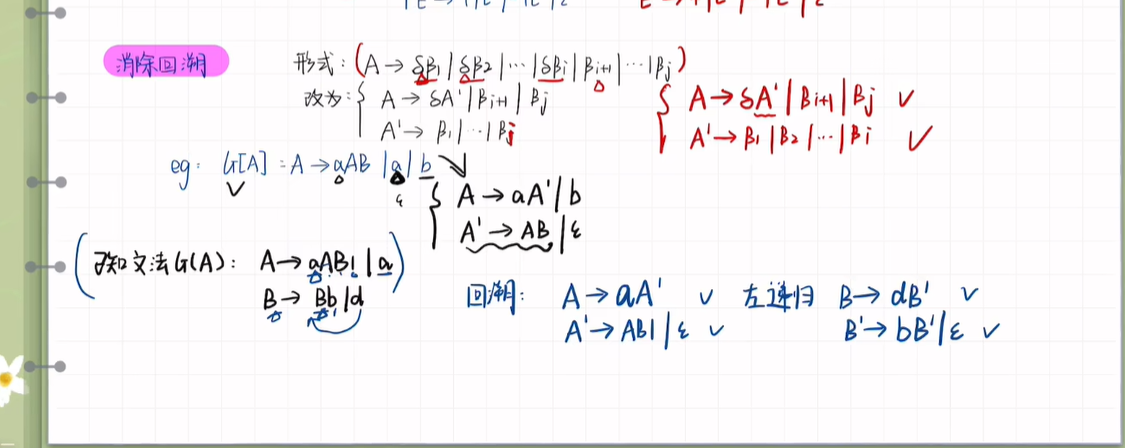 消除回溯 形式：(A→δβ1|δβ2|…|δβi|βi+1|…|βj)
改为：{ A→δA'|βi+1|βj
A'→β1|…|βj
{ A→δA'|βi+1|βj ✓
A'→β1|β2|…|βi ✓
eg： G[A]：A→aAB|a|b
ε
{ A→aA'|b
A'→AB|ε
(已知文法G(A)： A→aABl|a)
B→Bb|d
回溯： A→aA' ✓ 左递归 B→dB' ✓
A'→ABl|ε ✓ B'→bB'|ε ✓